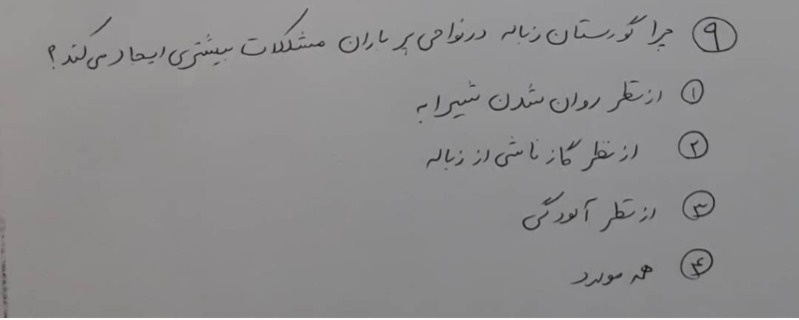 ۹ چرا گورستان زباله در نواحی پر باران مشکلات بیشتری ایجاد می‌کند؟
۱ از نظر روان شدن شیرابه
۲ از نظر گاز ناشی از زباله
۳ از نظر آلودگی
۴ همه موارد